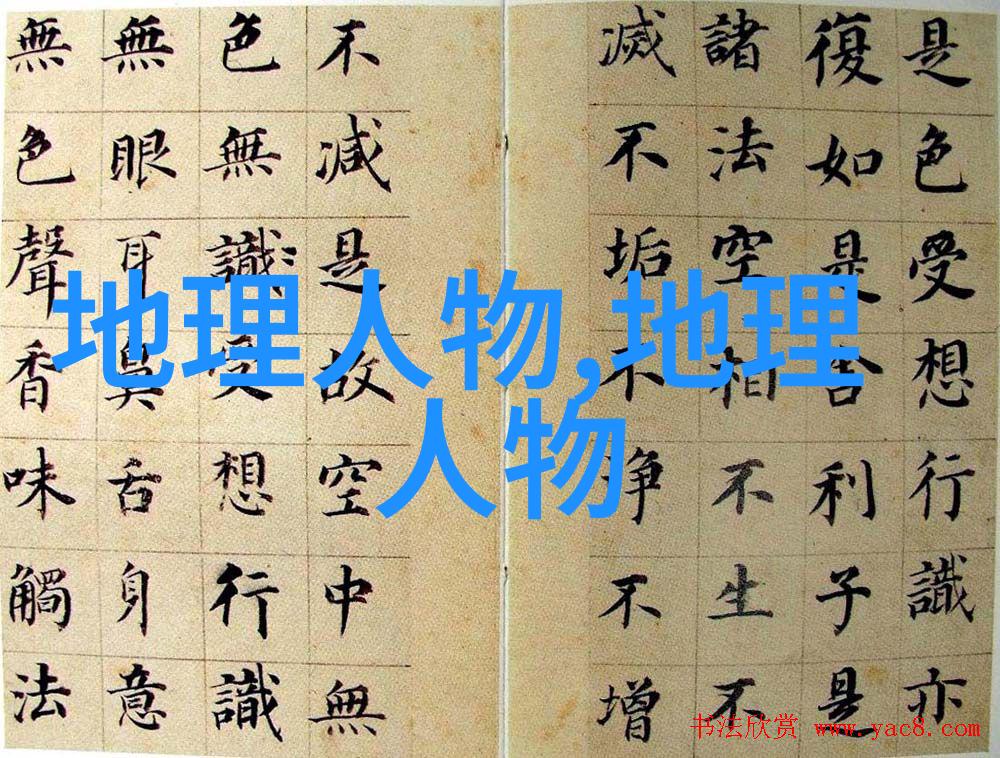 是色受想行識亦
復如是舍利子是
諸法空相不生不
滅不垢不净不增
不減是故空中無
色無識受想行識
無眼耳鼻舌身意
無色聲香味觸法
地理人物,地理
人物
书法欣赏 www.yac8.com